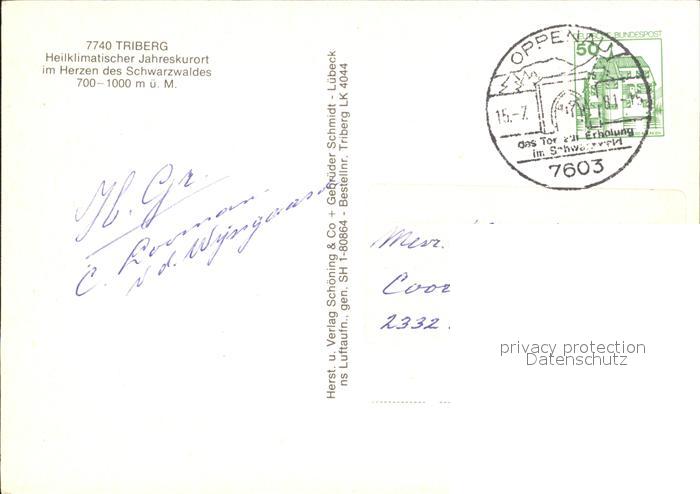 7740 TRIBERG
Heilklimatischer Jahreskurort
im Herzen des Schwarzwaldes
700–1000 m ü. M.
DEUTSCHE BUNDESPOST
50
OPPENAU
15.-7. 81-15
das Tor zur Erholung
im Schwarzwald
7603
Herst. u. Verlag Schöning & Co + Gebrüder Schmidt - Lübeck
ns Luftaufn., gen. SH 1-80864 - Bestellnr. Triberg LK 4044
H. Gr.
C.
v. d. Wijngaard
Mevr.
Coor
2332
privacy protection
Datenschutz